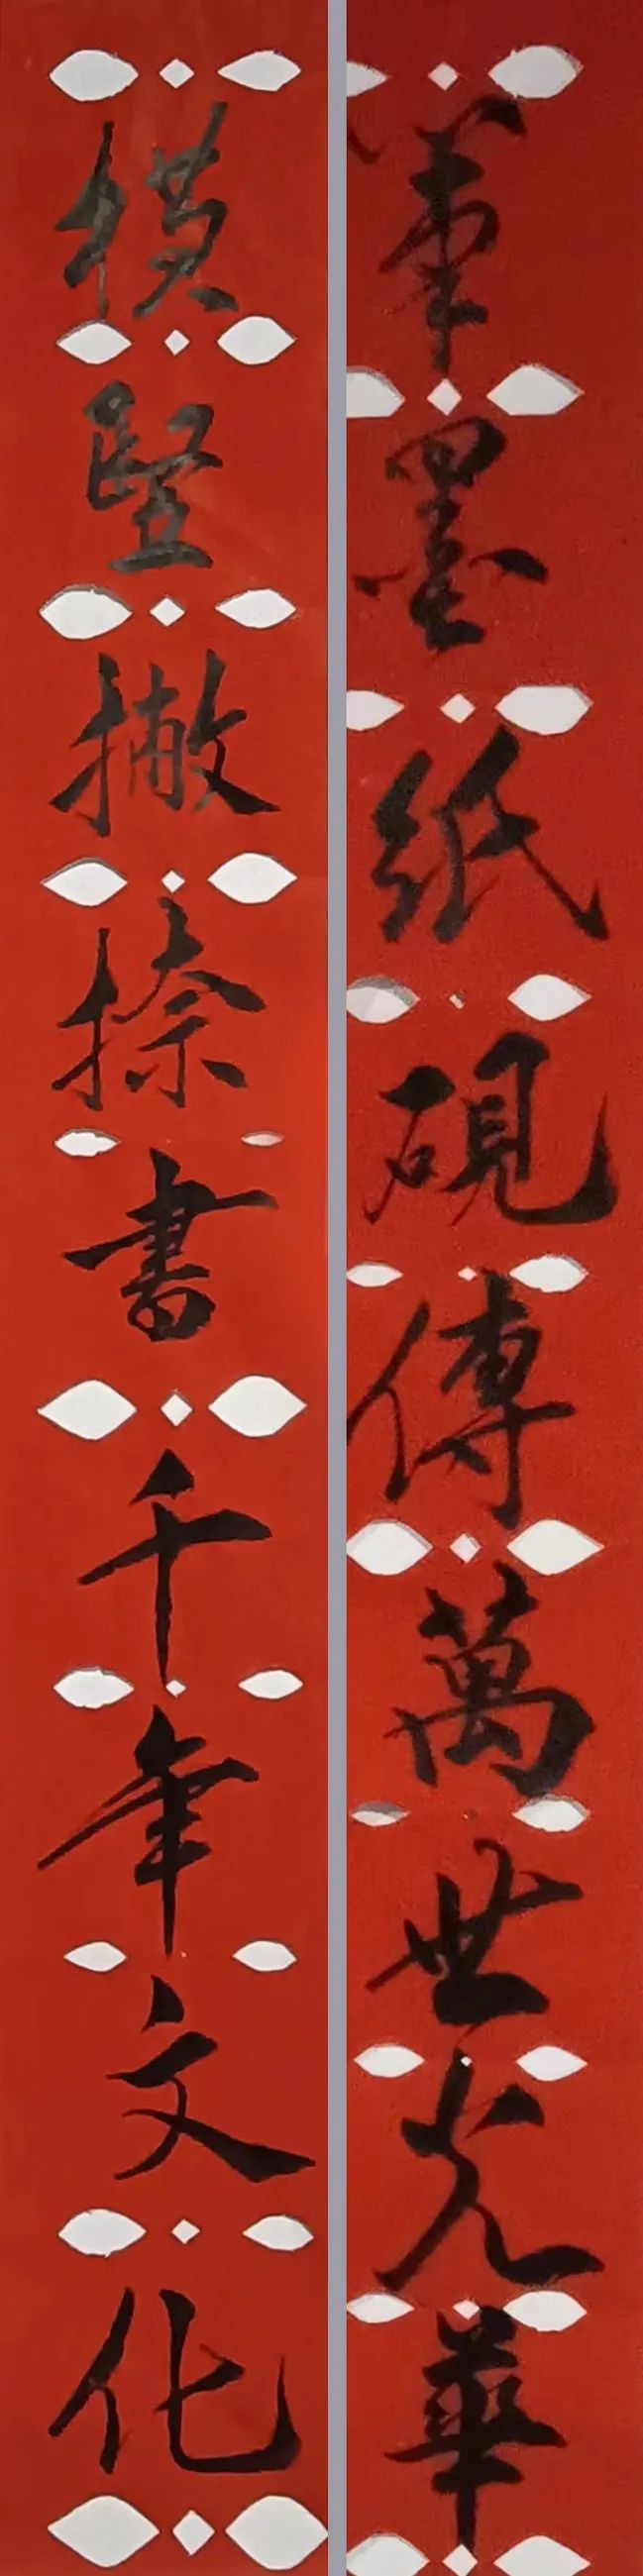 筆墨紙硯傳萬世光華
橫豎撇捺書千年文化